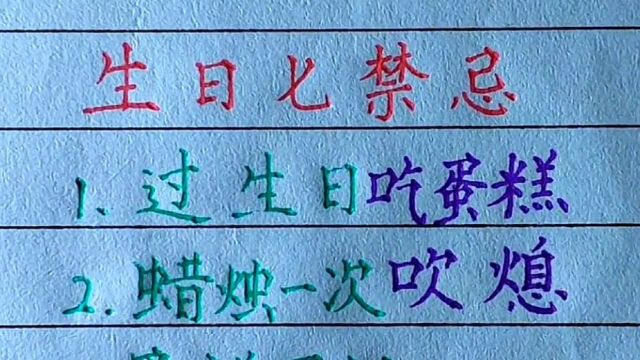 生日七禁忌
1.过生日吃蛋糕
2.蜡烛一次吹熄